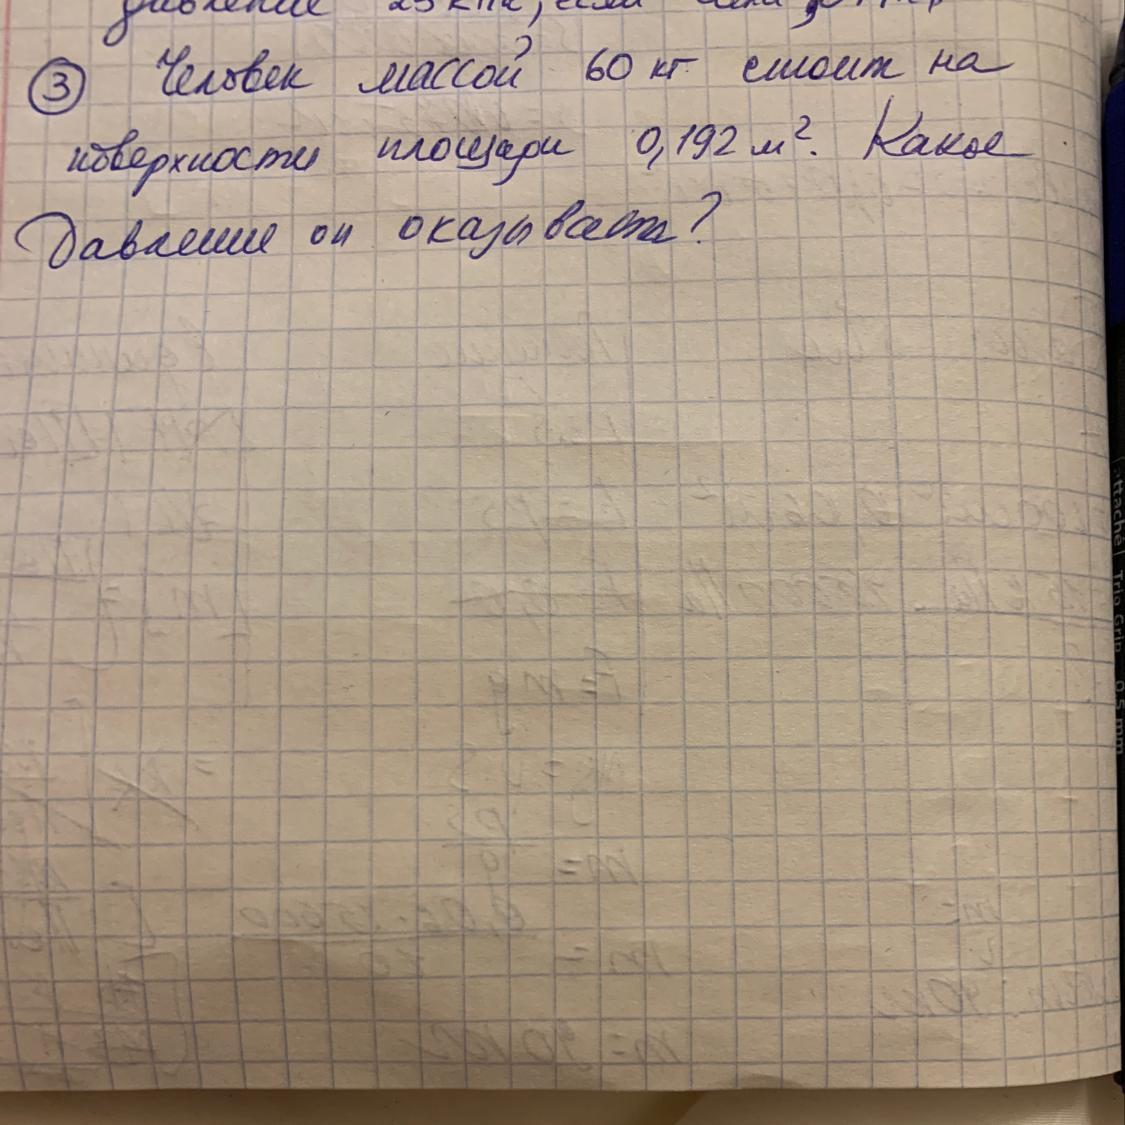 давление 25 кПа, если
③ Человек массой 60 кг стоит на
поверхности площади 0,192 м². Какое
Давление он оказывает?
attaché Trio Grip 0,5 mm